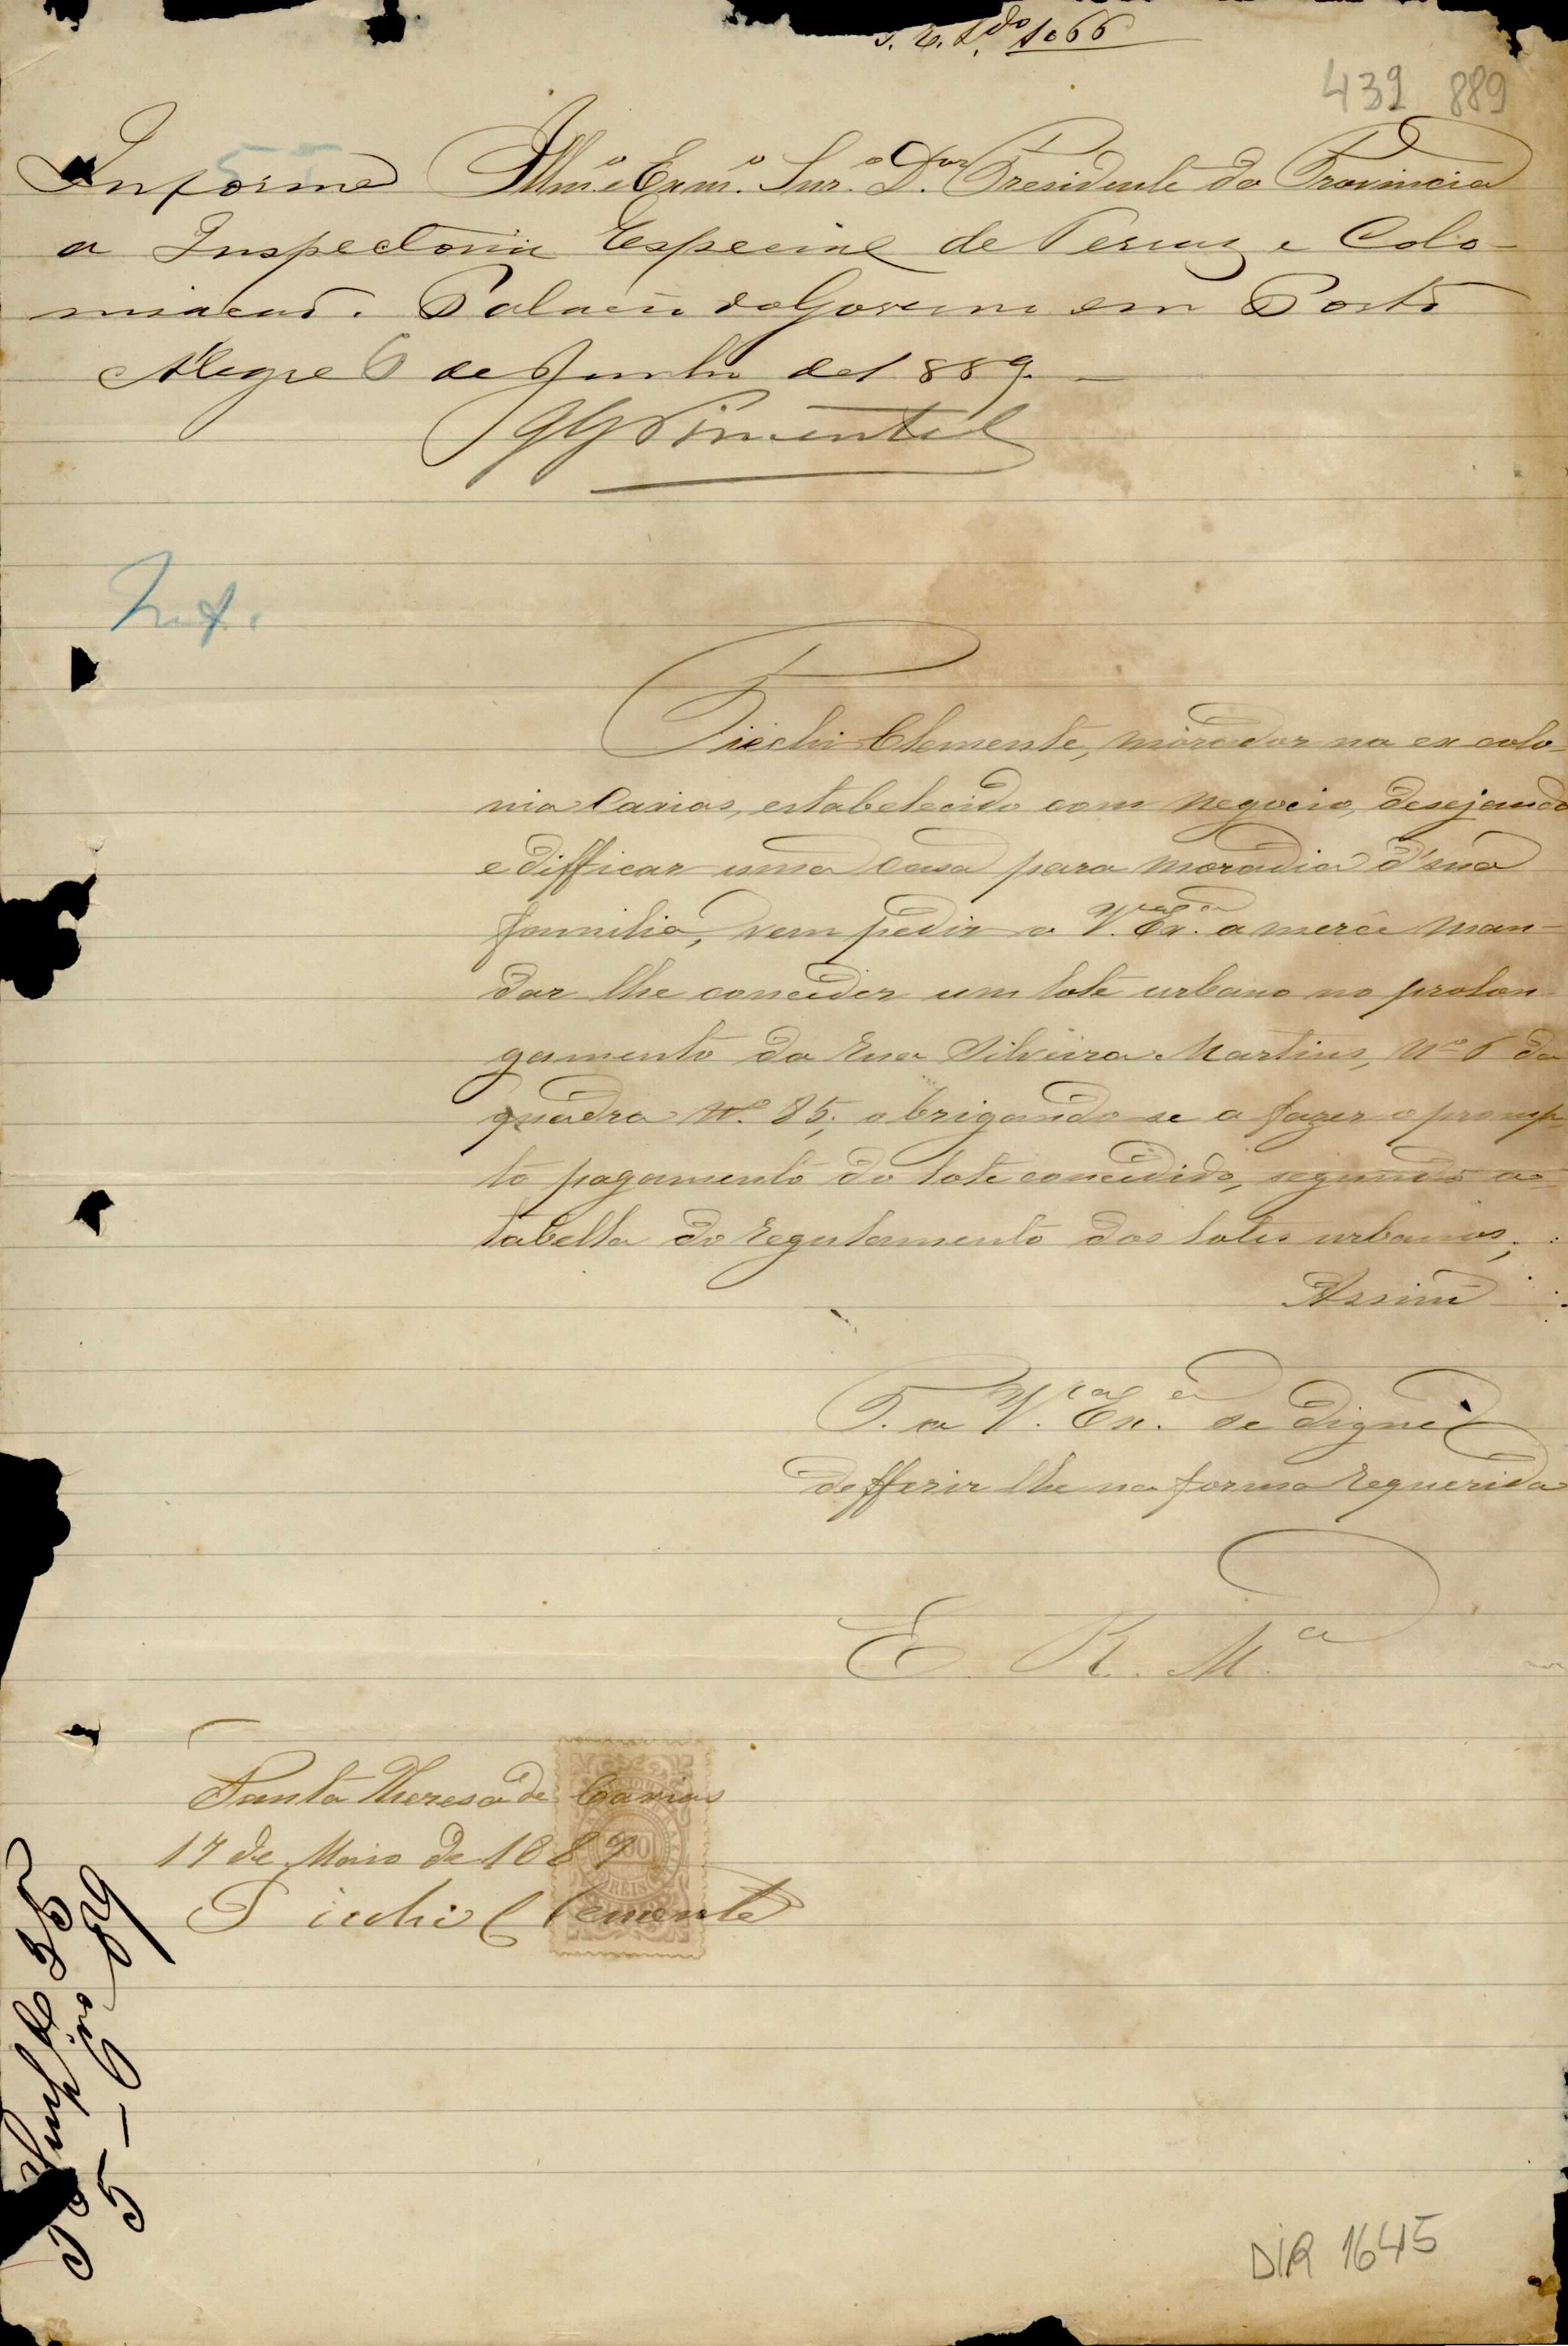 1066
439 889
Informe Illmo e Exmo. Snr. Dor. Presidente da Provincia
a Inspectoria Especial de Terras e Colo-
nisacao. Palacio do Governo em Porto
Alegre 6 de Junho de 1889.
Pimentel
Int.
Piechi Clemente, morador na ex colo-
nia Caxias, estabelecido com negocio, desejando
edifficar uma casa para moradia d'sua
familia, vem pedir a V. Excia. a mercê man-
dar lhe conceder um lote urbano no prolon-
gamento da Rua Silveira Martins, No. 6 da
quadra No. 85; obrigando se a fazer o promp-
to pagamento do lote concedido, segundo a
tabella do regulamento dos lotes urbanos;
Assim
P. a V. Excia. se digne
defferir lhe na forma requerida
E. R. M.a
Santa Thereza de Caxias
17 de Maio de 1889
Piechi Clemente
200
REIS
5 - 6 - 89
DIR 1645